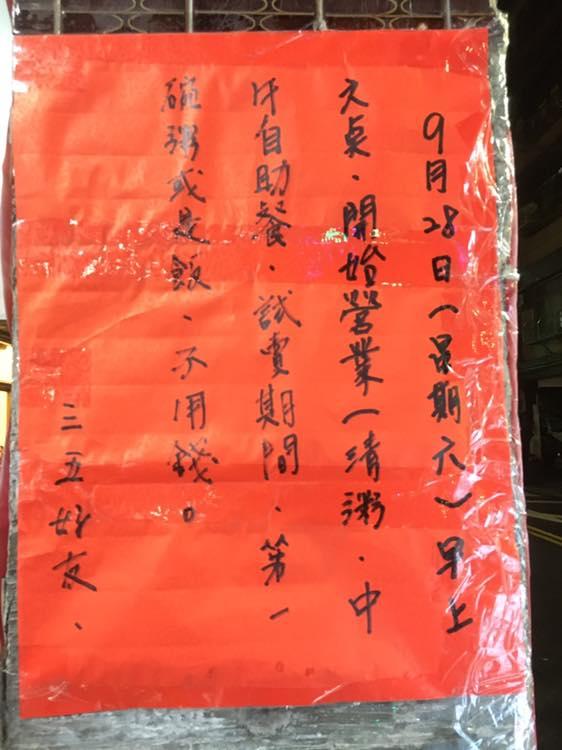 9月28日(星期六)早上
六奌、開始營業(清粥、中
午自助餐、試賣期間、第一
碗粥或是飯、不用錢。
三五好友、